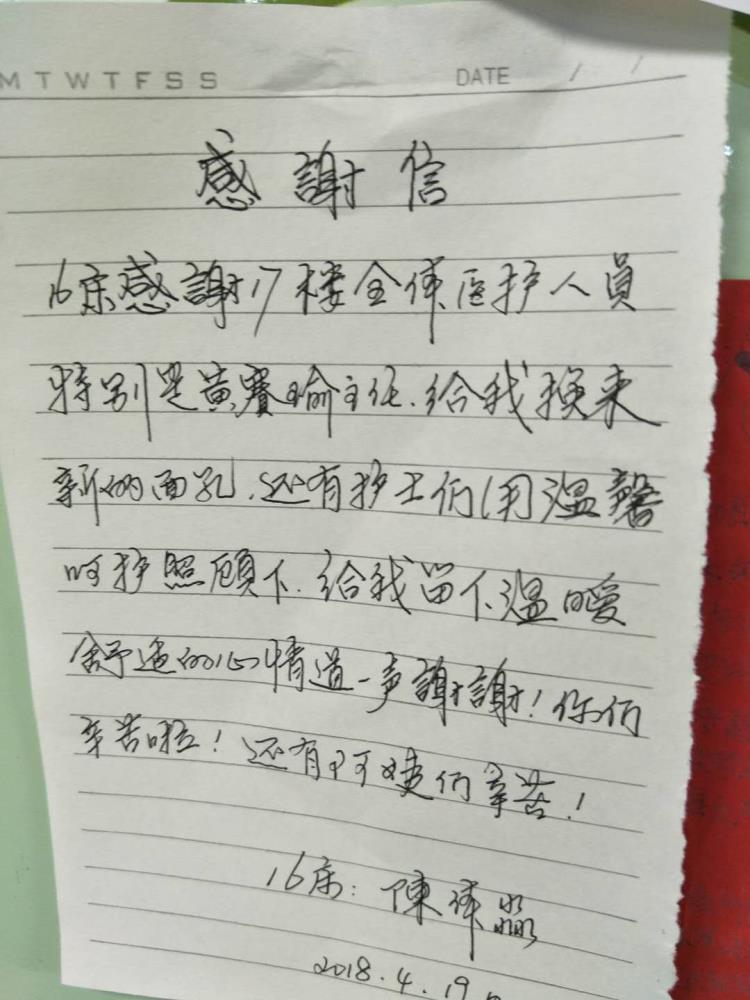 M T W T F S S DATE / /
感謝信
16床感謝17楼全体医护人員
特别是黄賽瑜主任.给我换来
新的面孔.还有护士们(用温馨
呵护照顾下.给我留下温暖
舒适的心情道一声謝謝!你们
辛苦啦!还有阿婕们辛苦!
16床:陳
2018.4.19